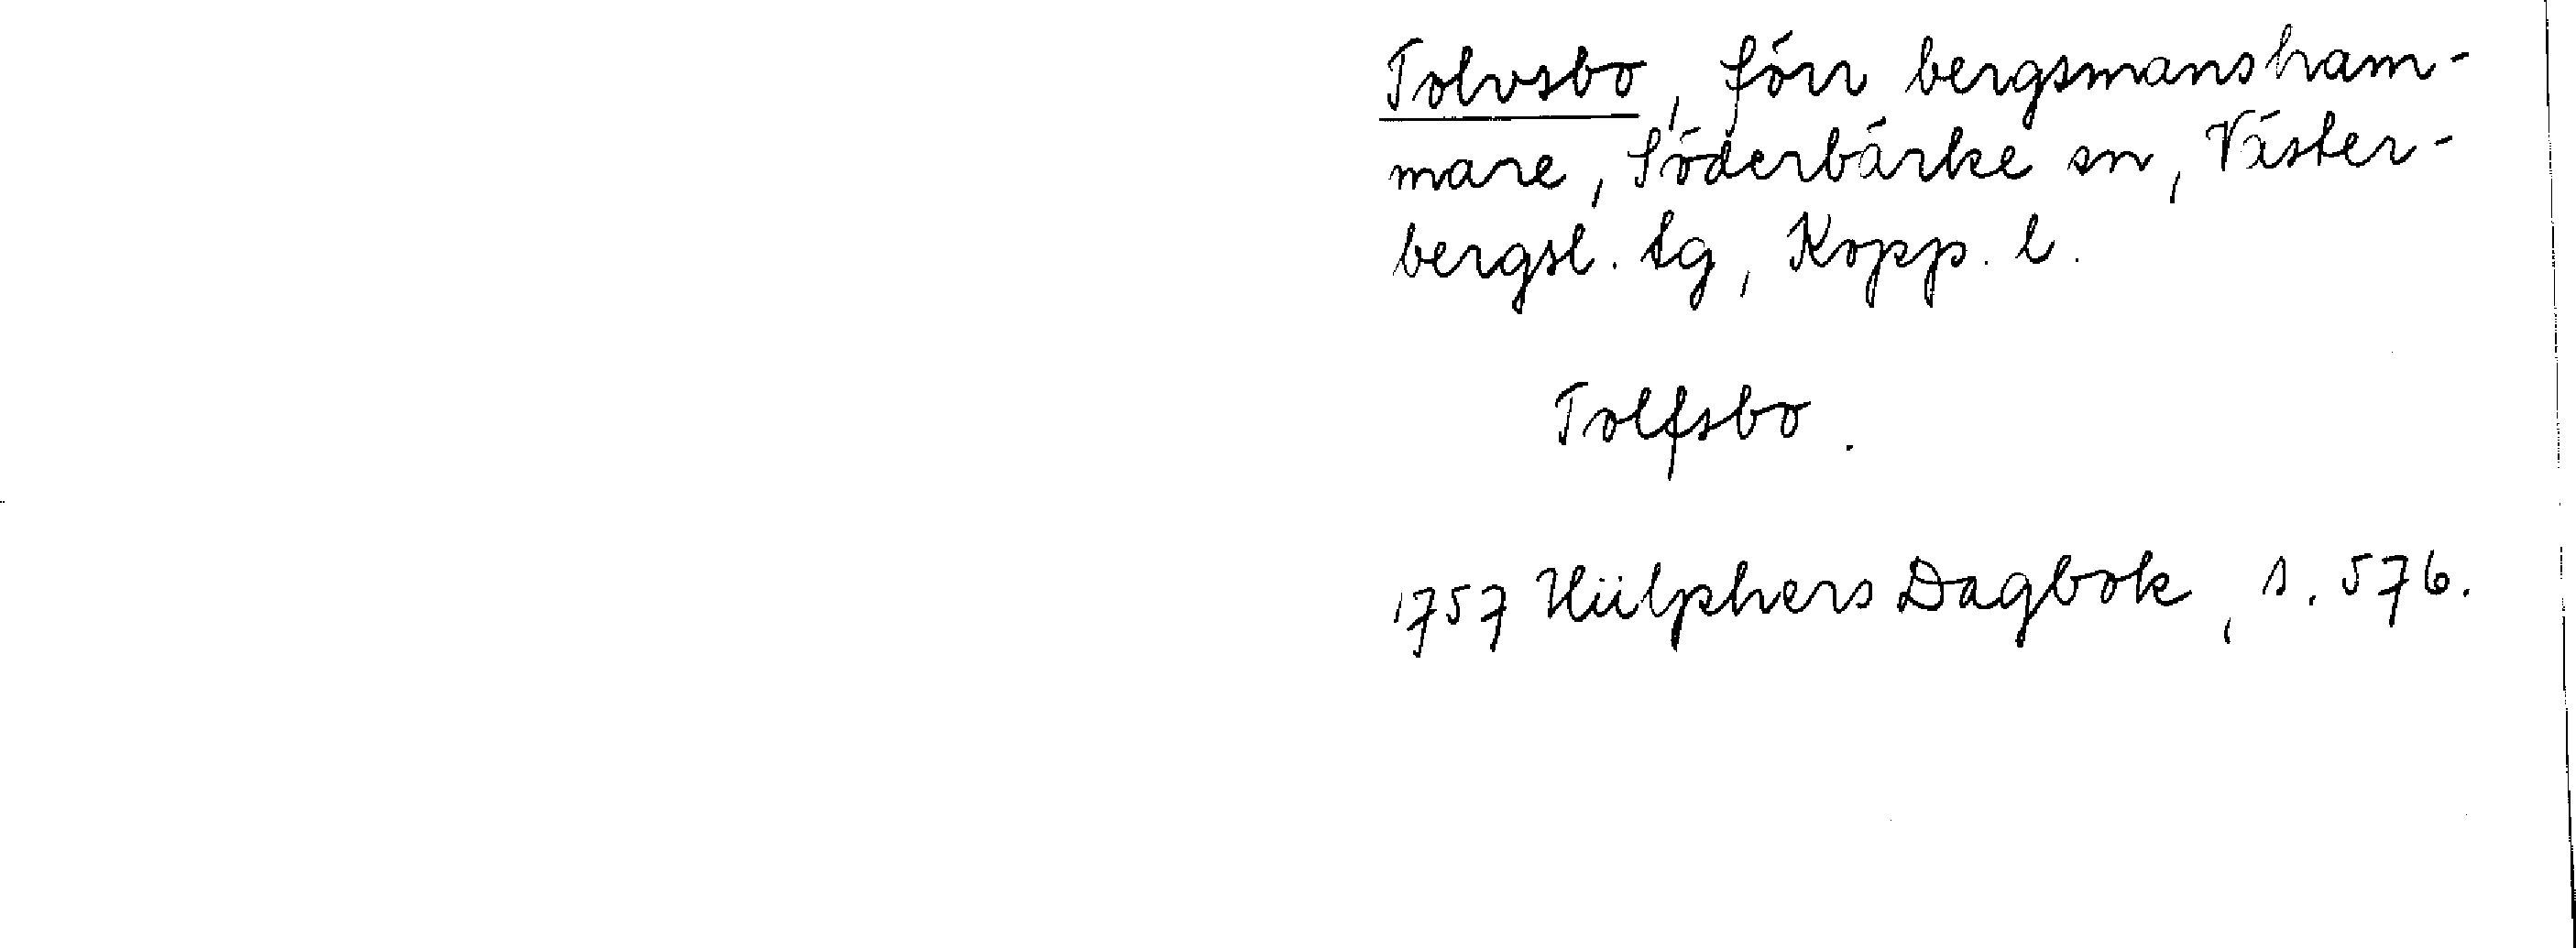 Tolvsbo, förr bergsmansham-
mare, Söderbärke sn, Väster-
bergsl. tg, Kopp. l.
Tolfsbo.
1757 Hülphers Dagbok, s. 576.